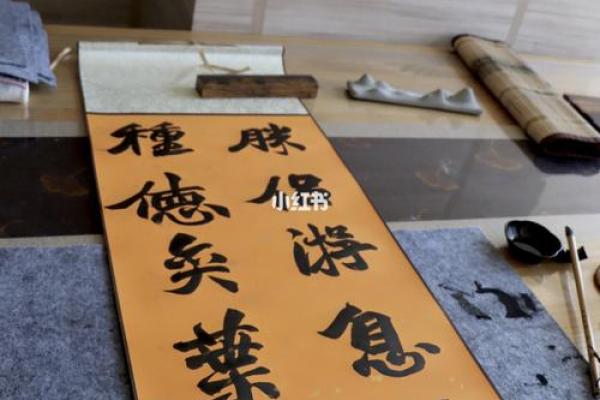 勝游息
種德奕葉
小红书